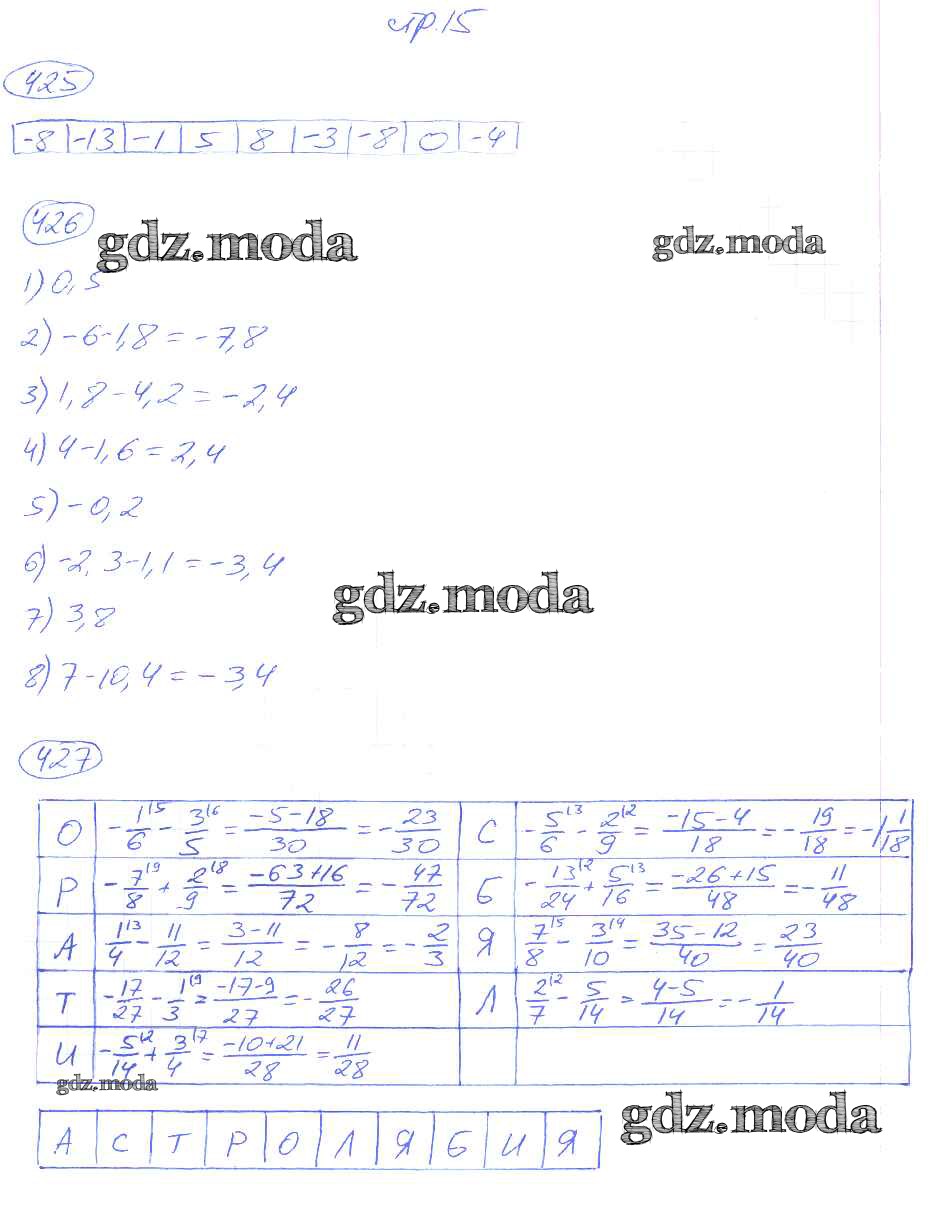 стр.15
425
-8 -13 -1 5 8 -3 -8 0 -4
426
gdz.moda gdz.moda
1) 0,5
2) -6-1,8 = -7,8
3) 1,8-4,2 = -2,4
4) 4-1,6 = 2,4
5) -0,2
6) -2,3-1,1 = -3,4
gdz.moda
7) 3,8
8) 7-10,4 = -3,4
427
О -1/6|5 - 3/5|6 = -5-18/30 = -23/30 С -5/6|3 - 2/9|2 = -15-4/18 = -19/18 = -1 1/18
Р -7/8|9 + 2/9|8 = -63+16/72 = -47/72 Б -13/24|2 + 5/16|3 = -26+15/48 = -11/48
А 1/4|3 - 11/12 = 3-11/12 = -8/12 = -2/3 Я 7/8|5 - 3/10|4 = 35-12/40 = 23/40
Т -17/27 - 1/3|9 = -17-9/27 = -26/27 Л 2/7|2 - 5/14 = 4-5/14 = -1/14
И -5/14|2 + 3/4|7 = -10+21/28 = 11/28
gdz.moda
gdz.moda
А С Т Р О Л Я Б И Я